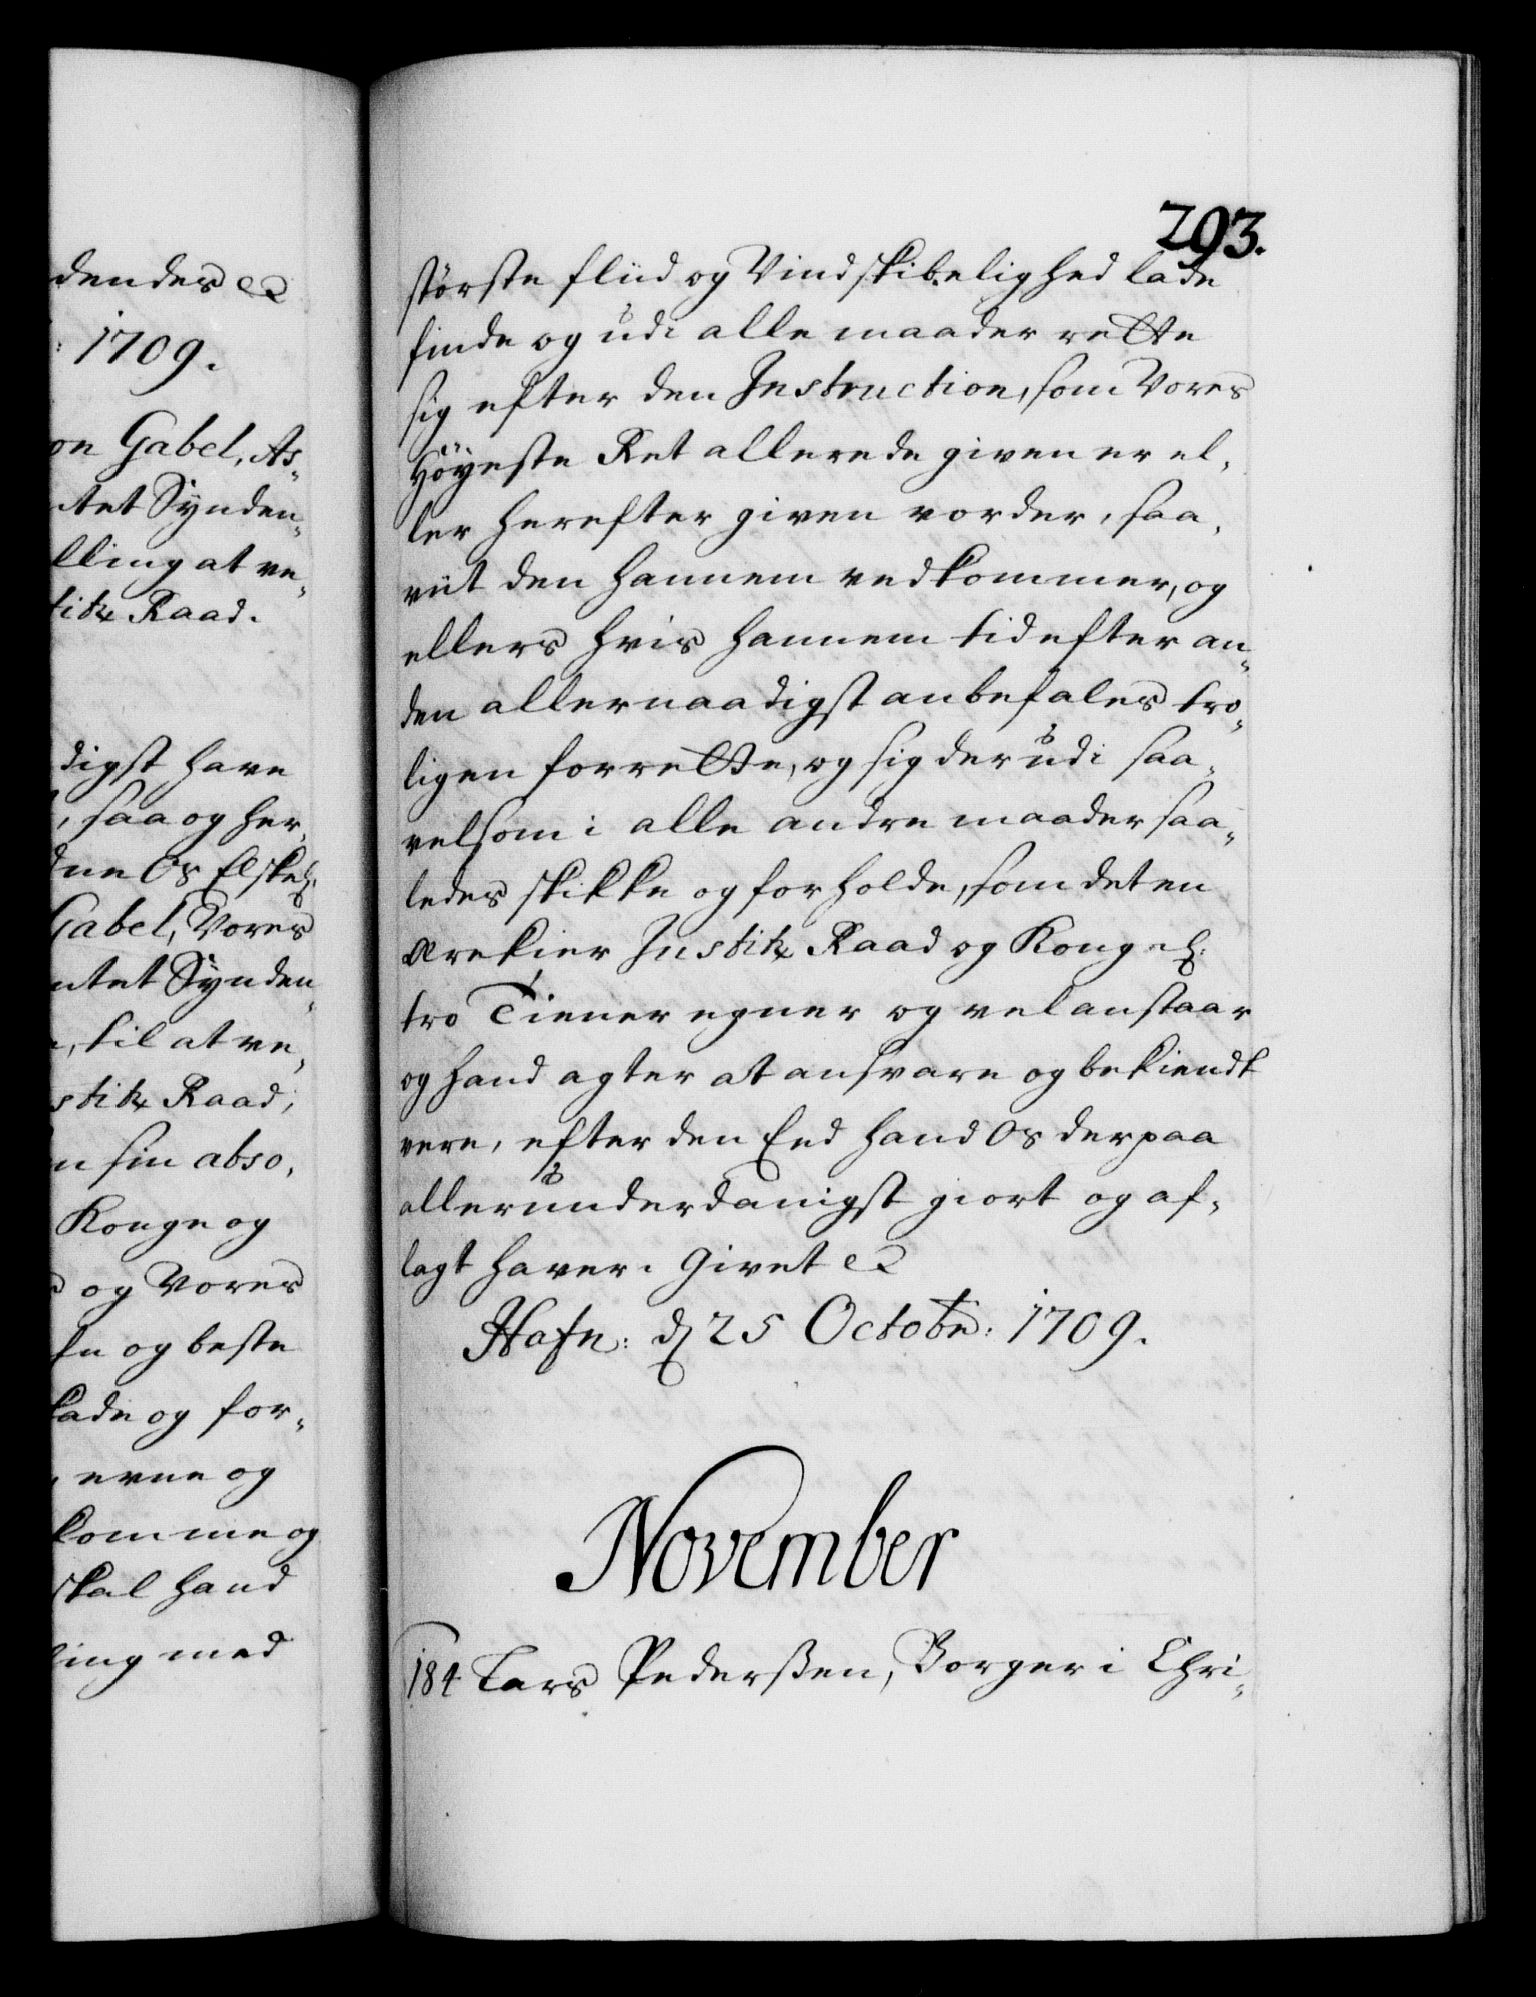 dendes &c
: 1709.
on Gabel, As-
ntet Synden-
lling at ve-
titz Raad.
digst have
, saa og her-
dne Os Elskel.
Gabel, Vores
ntet Synden-
, til at ve-
stitz Raad,
n sin abso-
Konge og
og Vores
fn og beste
kade og for-
, evne og
komme og
skal hand
ling med
293.
störste fliid og Vindskibelighed lade
finde og udi alle maader rette
sig efter den Instruction, som Vores
Höyeste Ret allerede given er el-
ler herefter given vorder, saa-
viit den hannem vedkommer, og
ellers hvis hannem tid efter an-
den allernaadigst anbefales tro-
ligen forrette, og sig derudi saa-
velsom i alle andre maader saa-
ledes skikke og forholde, som det en
ærekier Justitz Raad og Kongel.
tro Tiener egner og vel anstaar
og hand agter at ansvare og bekiendt
vere, efter den Eed hand Os derpaa
allerunderdanigst giort og af-
lagt haver. Givet &c
Hafn: d 25 Octobr: 1709.
November
184 Lars Pederßen, Borger i Chri-